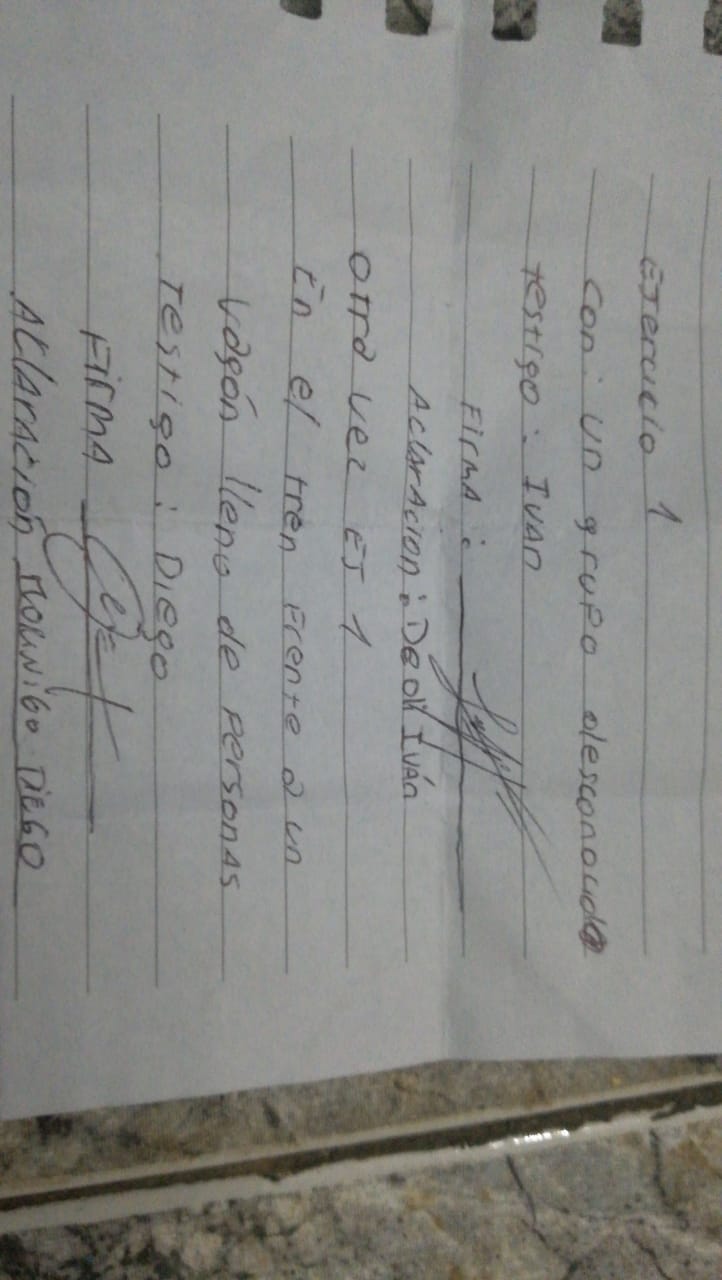 Ejercicio 1
con: un grupo desconocido
testigo: Ivan
Firma:
Aclaracion: Deoli Iván
otra vez EJ 1
En el tren Frente a un
vagón lleno de personas
Testigo: Diego
Firma
Aclaración Morinigo Diego